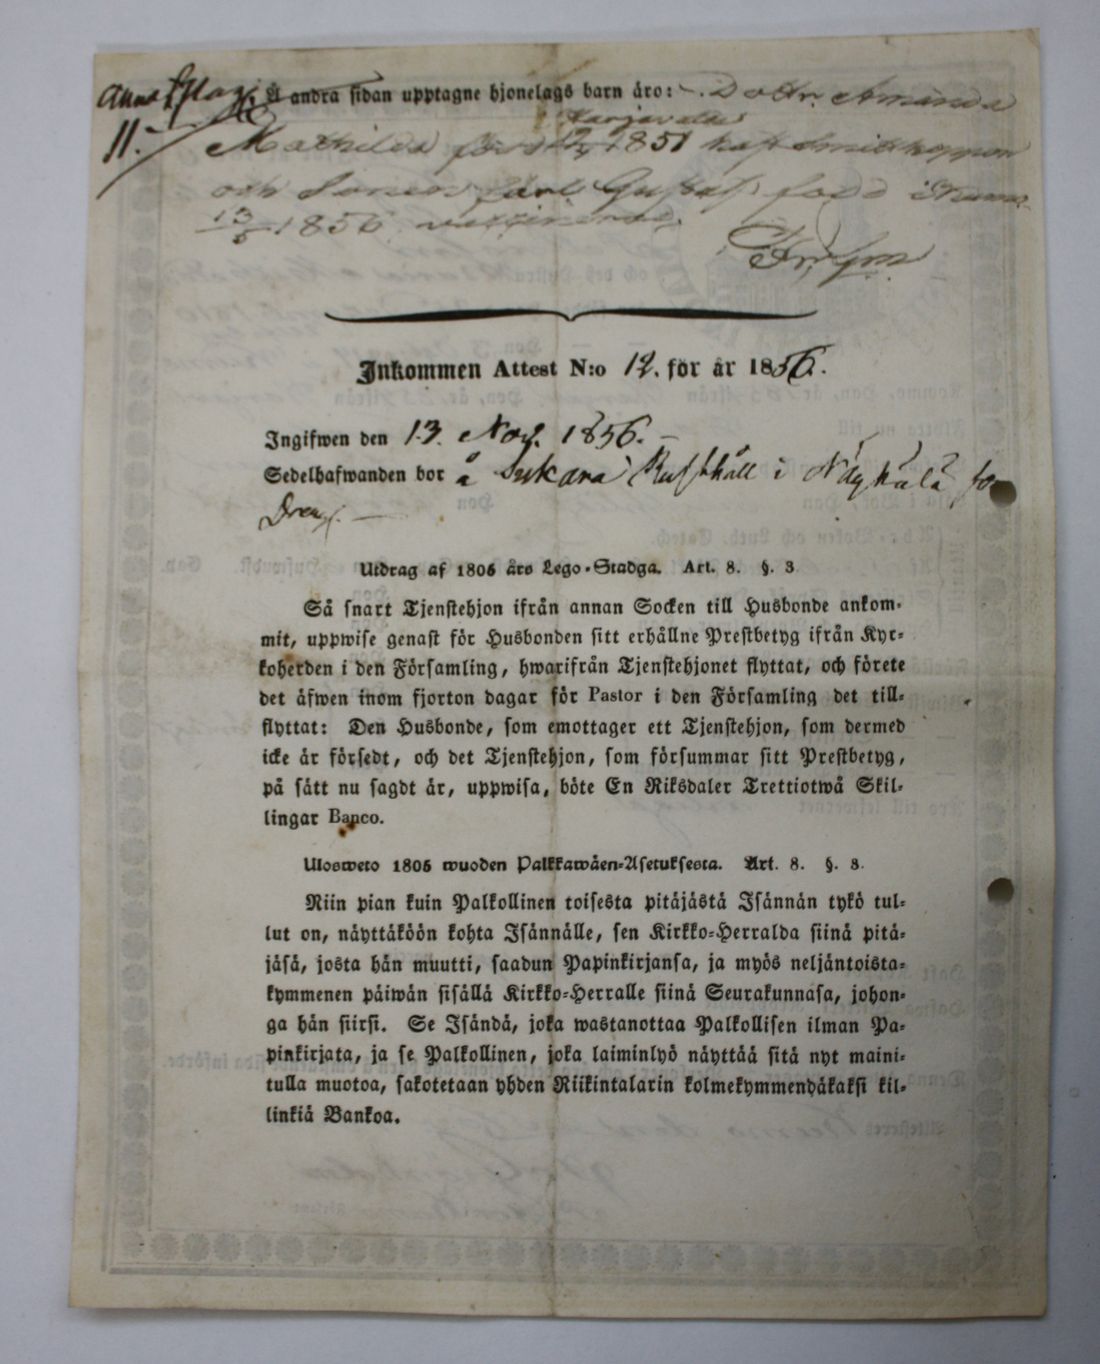 Å andra sidan upptagne hjonelags barn äro: Dottr. Amanda
11.
Mathilda född 1851 haft
och Sonen Carl Gustaf född i
13/5 1856
Inkommen Attest N:o 12. för år 1856.
Ingifwen den 13. Nov. 1856.
Sedelhafwanden bor å Sukara Rusthåll i Näykälä
Dreng.
Utdrag af 1805 års Lego-Stadga. Art. 8. §. 3
Så snart Tjenstehjon ifrån annan Socken till Husbonde ankom-
mit, uppwise genast för Husbonden sitt erhållne Prestbetyg ifrån Kyr-
koherden i den Församling, hwarifrån Tjenstehjonet flyttat, och förete
det äfwen inom fjorton dagar för Pastor i den Församling det till-
flyttat: Den Husbonde, som emottager ett Tjenstehjon, som dermed
icke är försedt, och det Tjenstehjon, som försummar sitt Prestbetyg,
på sätt nu sagdt är, uppwisa, böte En Riksdaler Trettiotwå Skil-
lingar Banco.
Ulosweto 1805 wuoden Palkkawäen-Asetuksesta. Art. 8. §. 3.
Niin pian kuin Palkollinen toisesta pitäjästä Isännän tykö tul-
lut on, näyttäköön kohta Isännälle, sen Kirkko-Herralda siinä pitä-
jäsä, josta hän muutti, saadun Papinkirjansa, ja myös neljäntoista-
kymmenen päiwän sisällä Kirkko-Herralle siinä Seurakunnasa, johon-
ga hän siirsi. Se Isändä, joka wastanottaa Palkollisen ilman Pa-
pinkirjata, ja se Palkollinen, joka laiminlyö näyttää sitä nyt maini-
tulla muotoa, sakotetaan yhden Riikintalarin kolmekymmendäkaksi kil-
linkiä Bankoa.